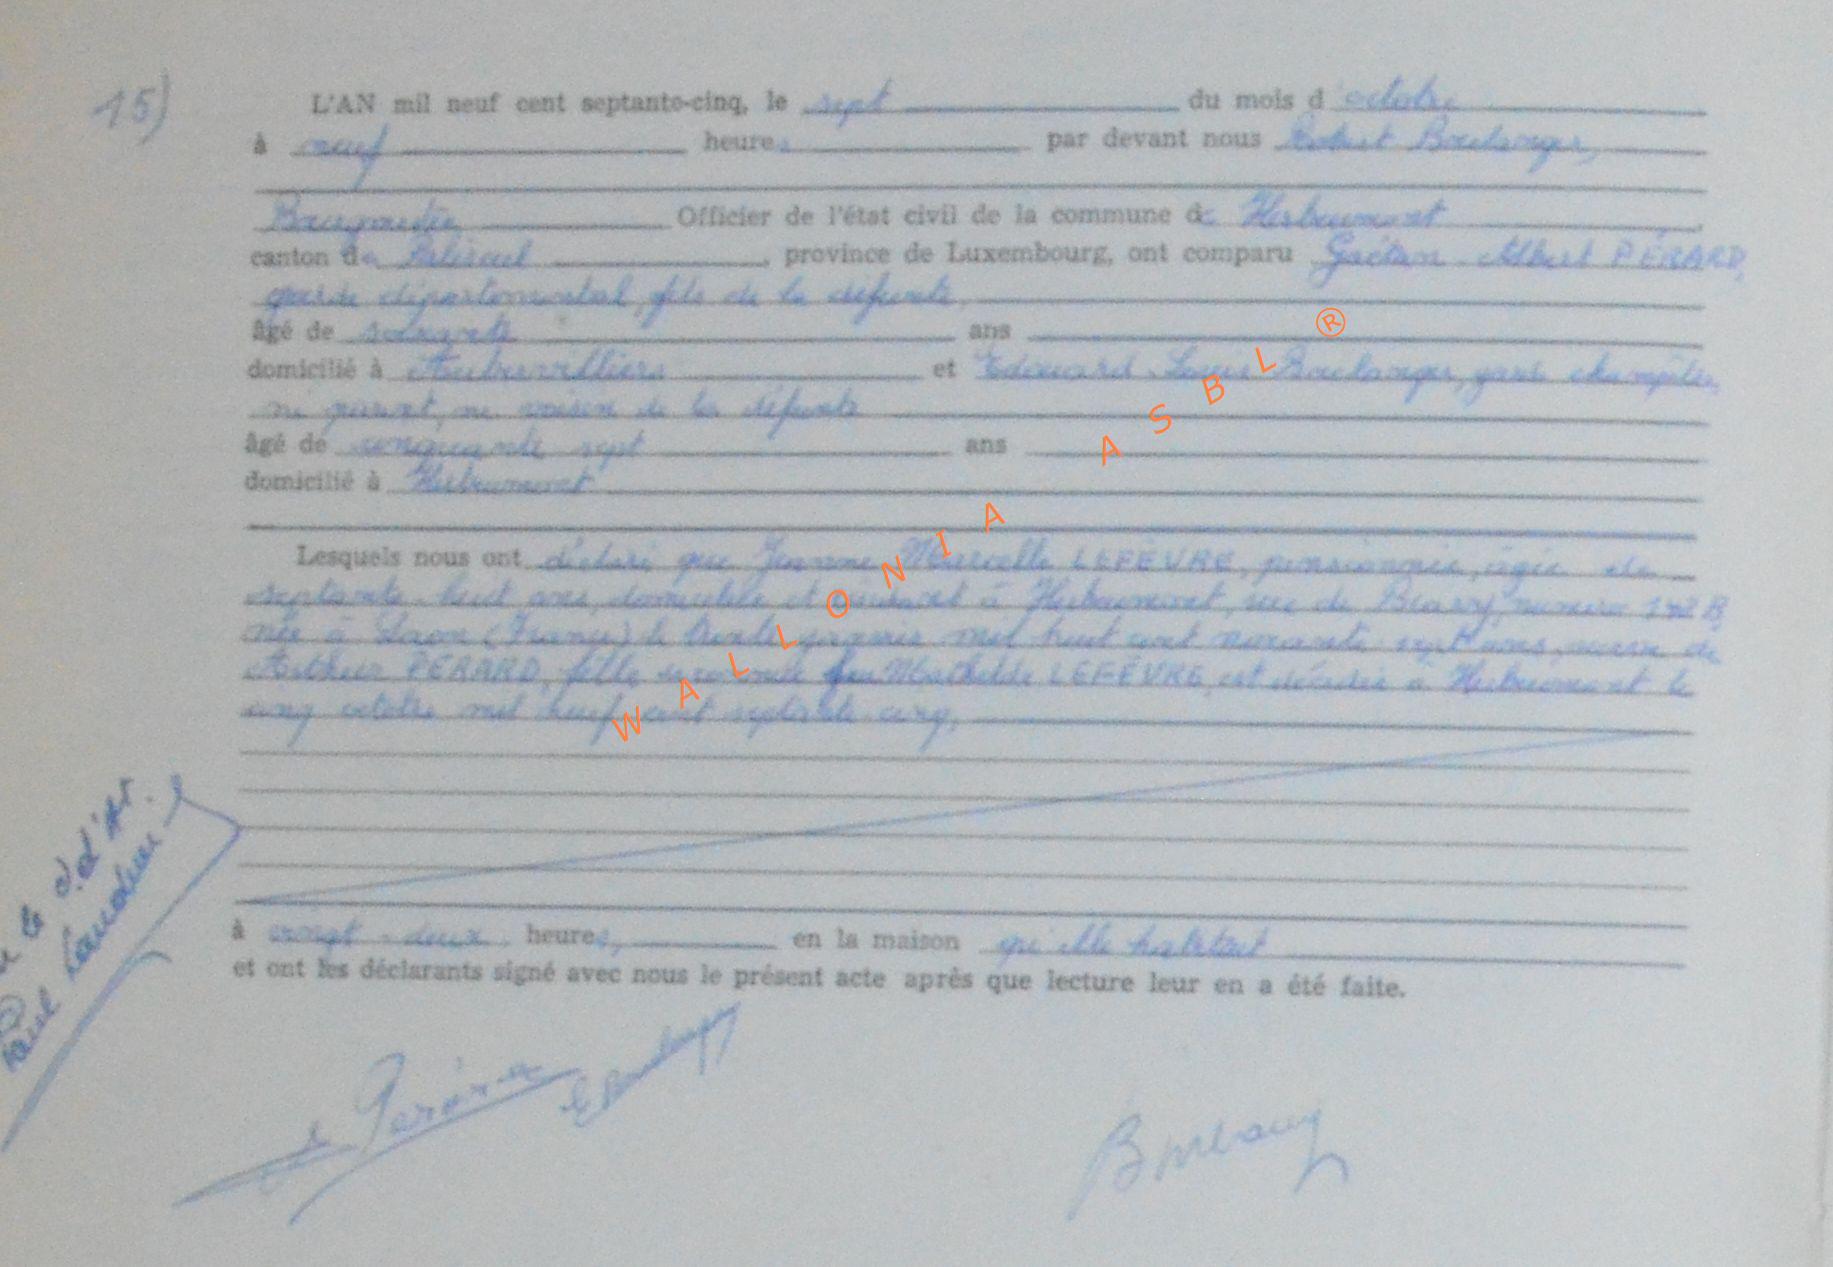 15)
L'AN mil neuf cent septante-cinq, le sept du mois d octobre
à neuf heures par devant nous Robert Boulanger,
Bourgmestre Officier de l'état civil de la commune de Herbeumont
canton de Paliseul, province de Luxembourg, ont comparu Gaëtan Albert PÉRARD,
garde départemental, fils de la défunte,
âgé de soixante ans
domicilié à Aubervilliers et Edouard Louis Boulanger, garde champêtre,
ni parent, ni voisin de la défunte
âgé de cinquante sept ans
domicilié à Herbeumont
Lesquels nous ont déclaré que Jeanne Marcelle LEFÈVRE, pensionnée, âgée de
septante-huit ans, domiciliée et à Herbeumont, rue de numéro 172 B,
née à Laon (France) le trente janvier mil huit cent nonante sept veuve de
Arthur PÉRARD, fille Mathilde LEFÈVRE, est décédée à Herbeumont le
cinq octobre mil neuf cent septante cinq,
à vingt-deux heures, en la maison qu'elle habitait
et ont les déclarants signé avec nous le présent acte après que lecture leur en a été faite.
le
Paul
Pérard
E Boulanger
WALLONIA ASBL ®